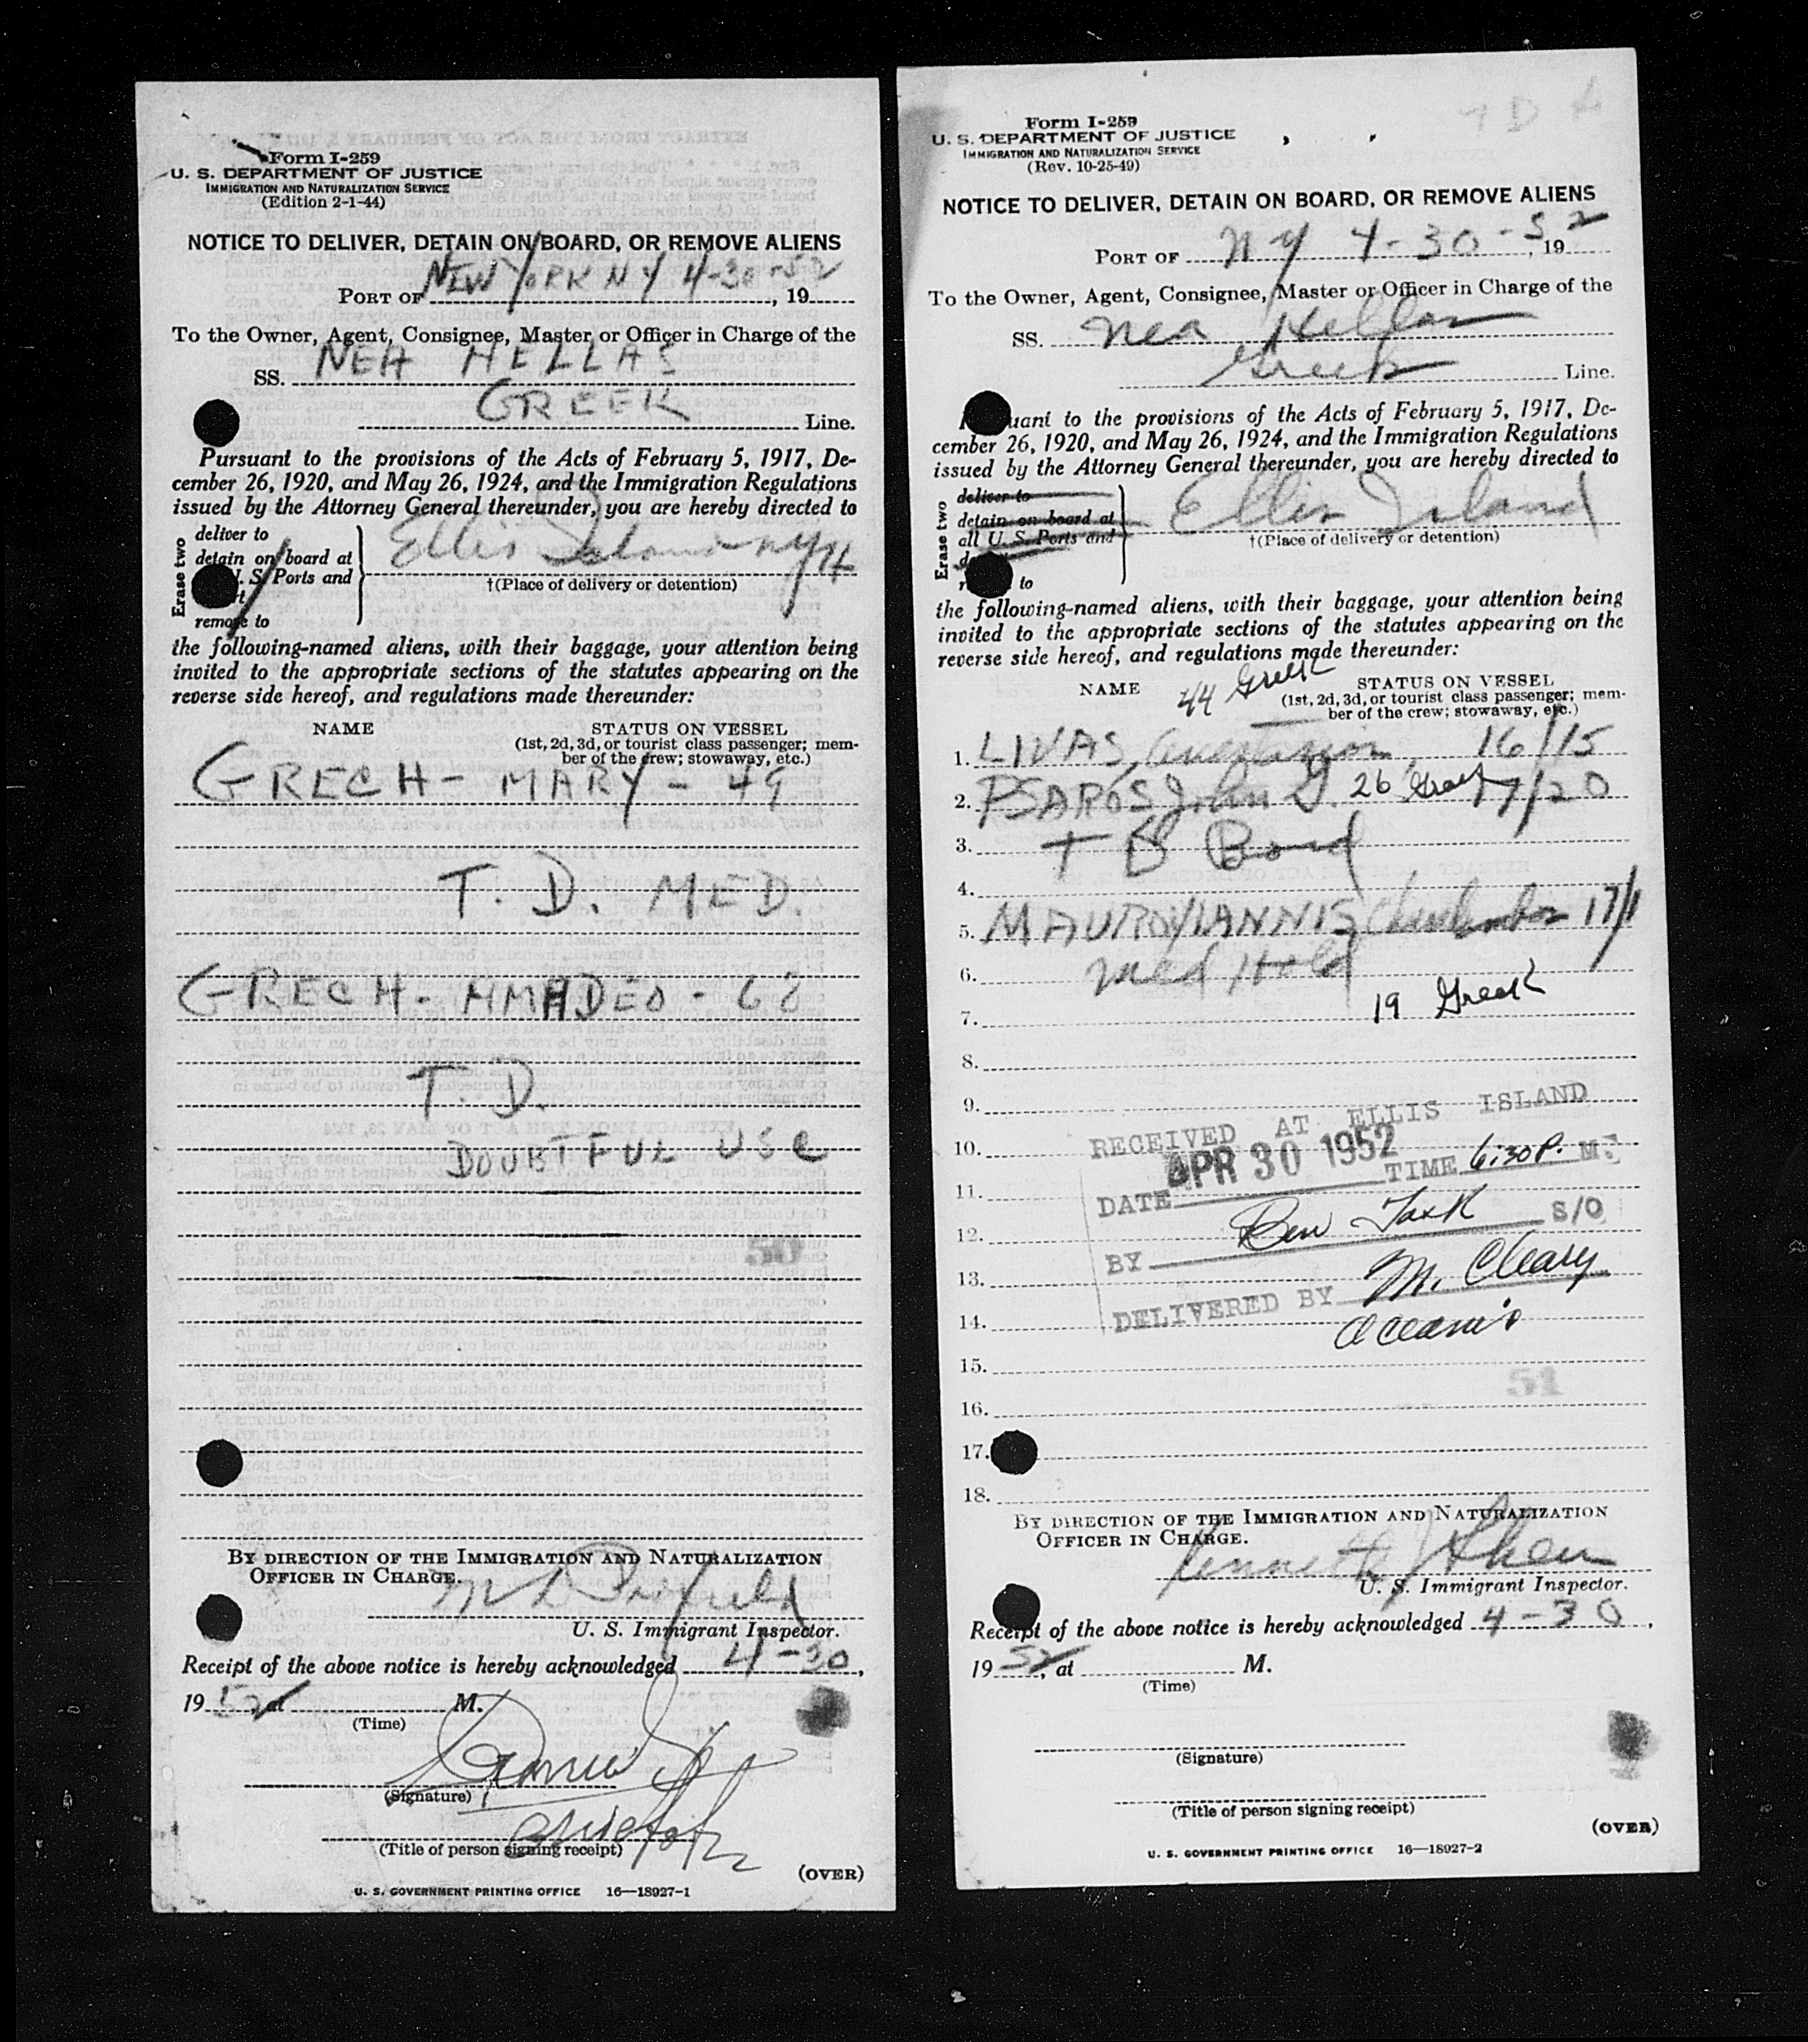 Form I-259
U. S. DEPARTMENT OF JUSTICE
IMMIGRATION AND NATURALIZATION SERVICE
(Edition 2-1-44)
NOTICE TO DELIVER, DETAIN ON BOARD, OR REMOVE ALIENS
PORT OF NEW YORK NY 4-30-52, 19
To the Owner, Agent, Consignee, Master or Officer in Charge of the
SS. NEA HELLAS
GREEK Line.
Pursuant to the provisions of the Acts of February 5, 1917, De-
cember 26, 1920, and May 26, 1924, and the Immigration Regulations
issued by the Attorney General thereunder, you are hereby directed to
Erase two
deliver to
detain on board at
S. Ports and
remove to
Ellis Island NY H
†(Place of delivery or detention)
the following-named aliens, with their baggage, your attention being
invited to the appropriate sections of the statutes appearing on the
reverse side hereof, and regulations made thereunder:
NAME STATUS ON VESSEL
(1st, 2d, 3d, or tourist class passenger; mem-
ber of the crew; stowaway, etc.)
GRECH - MARY - 49
T. D. MED.
GRECH - AMADEO - 62
T. D.
DOUBTFUL USC
50
BY DIRECTION OF THE IMMIGRATION AND NATURALIZATION
OFFICER IN CHARGE.
U. S. Immigrant Inspector.
Receipt of the above notice is hereby acknowledged 4-30,
1952, at M.
(Time)
(Signature)
(Title of person signing receipt)
(OVER)
U. S. GOVERNMENT PRINTING OFFICE 16—18927-1
T D
Form I-259
U. S. DEPARTMENT OF JUSTICE
IMMIGRATION AND NATURALIZATION SERVICE
(Rev. 10-25-49)
NOTICE TO DELIVER, DETAIN ON BOARD, OR REMOVE ALIENS
PORT OF NY 4-30-52, 19
To the Owner, Agent, Consignee, Master or Officer in Charge of the
SS. Nea Hellas
Greek Line.
uant to the provisions of the Acts of February 5, 1917, De-
cember 26, 1920, and May 26, 1924, and the Immigration Regulations
issued by the Attorney General thereunder, you are hereby directed to
Erase two
deliver to
detain on board at
all U. S. Ports and
to
Ellis Island
†(Place of delivery or detention)
the following-named aliens, with their baggage, your attention being
invited to the appropriate sections of the statutes appearing on the
reverse side hereof, and regulations made thereunder:
NAME 44 Greek STATUS ON VESSEL
(1st, 2d, 3d, or tourist class passenger; mem-
ber of the crew; stowaway, etc.)
1. LIVAS, 16/15
2. PSAROS John G. 26 Greek 17/20
3. T D Bond
4.
5. MAUROYIANNIS 17/1
6. Med Hold
7. 19 Greek
8.
9.
10.
11.
12.
13.
14.
15.
16.
17.
18.
RECEIVED AT ELLIS ISLAND
DATE APR 30 1952 TIME 6:30 P. M.
BY Ben Task S/O
DELIVERED BY M. Cleary
51
BY DIRECTION OF THE IMMIGRATION AND NATURALIZATION
OFFICER IN CHARGE.
Kenneth J Shea
U. S. Immigrant Inspector.
Receipt of the above notice is hereby acknowledged 4-30,
1952, at M.
(Time)
(Signature)
(Title of person signing receipt)
(OVER)
U. S. GOVERNMENT PRINTING OFFICE 16—18927-2